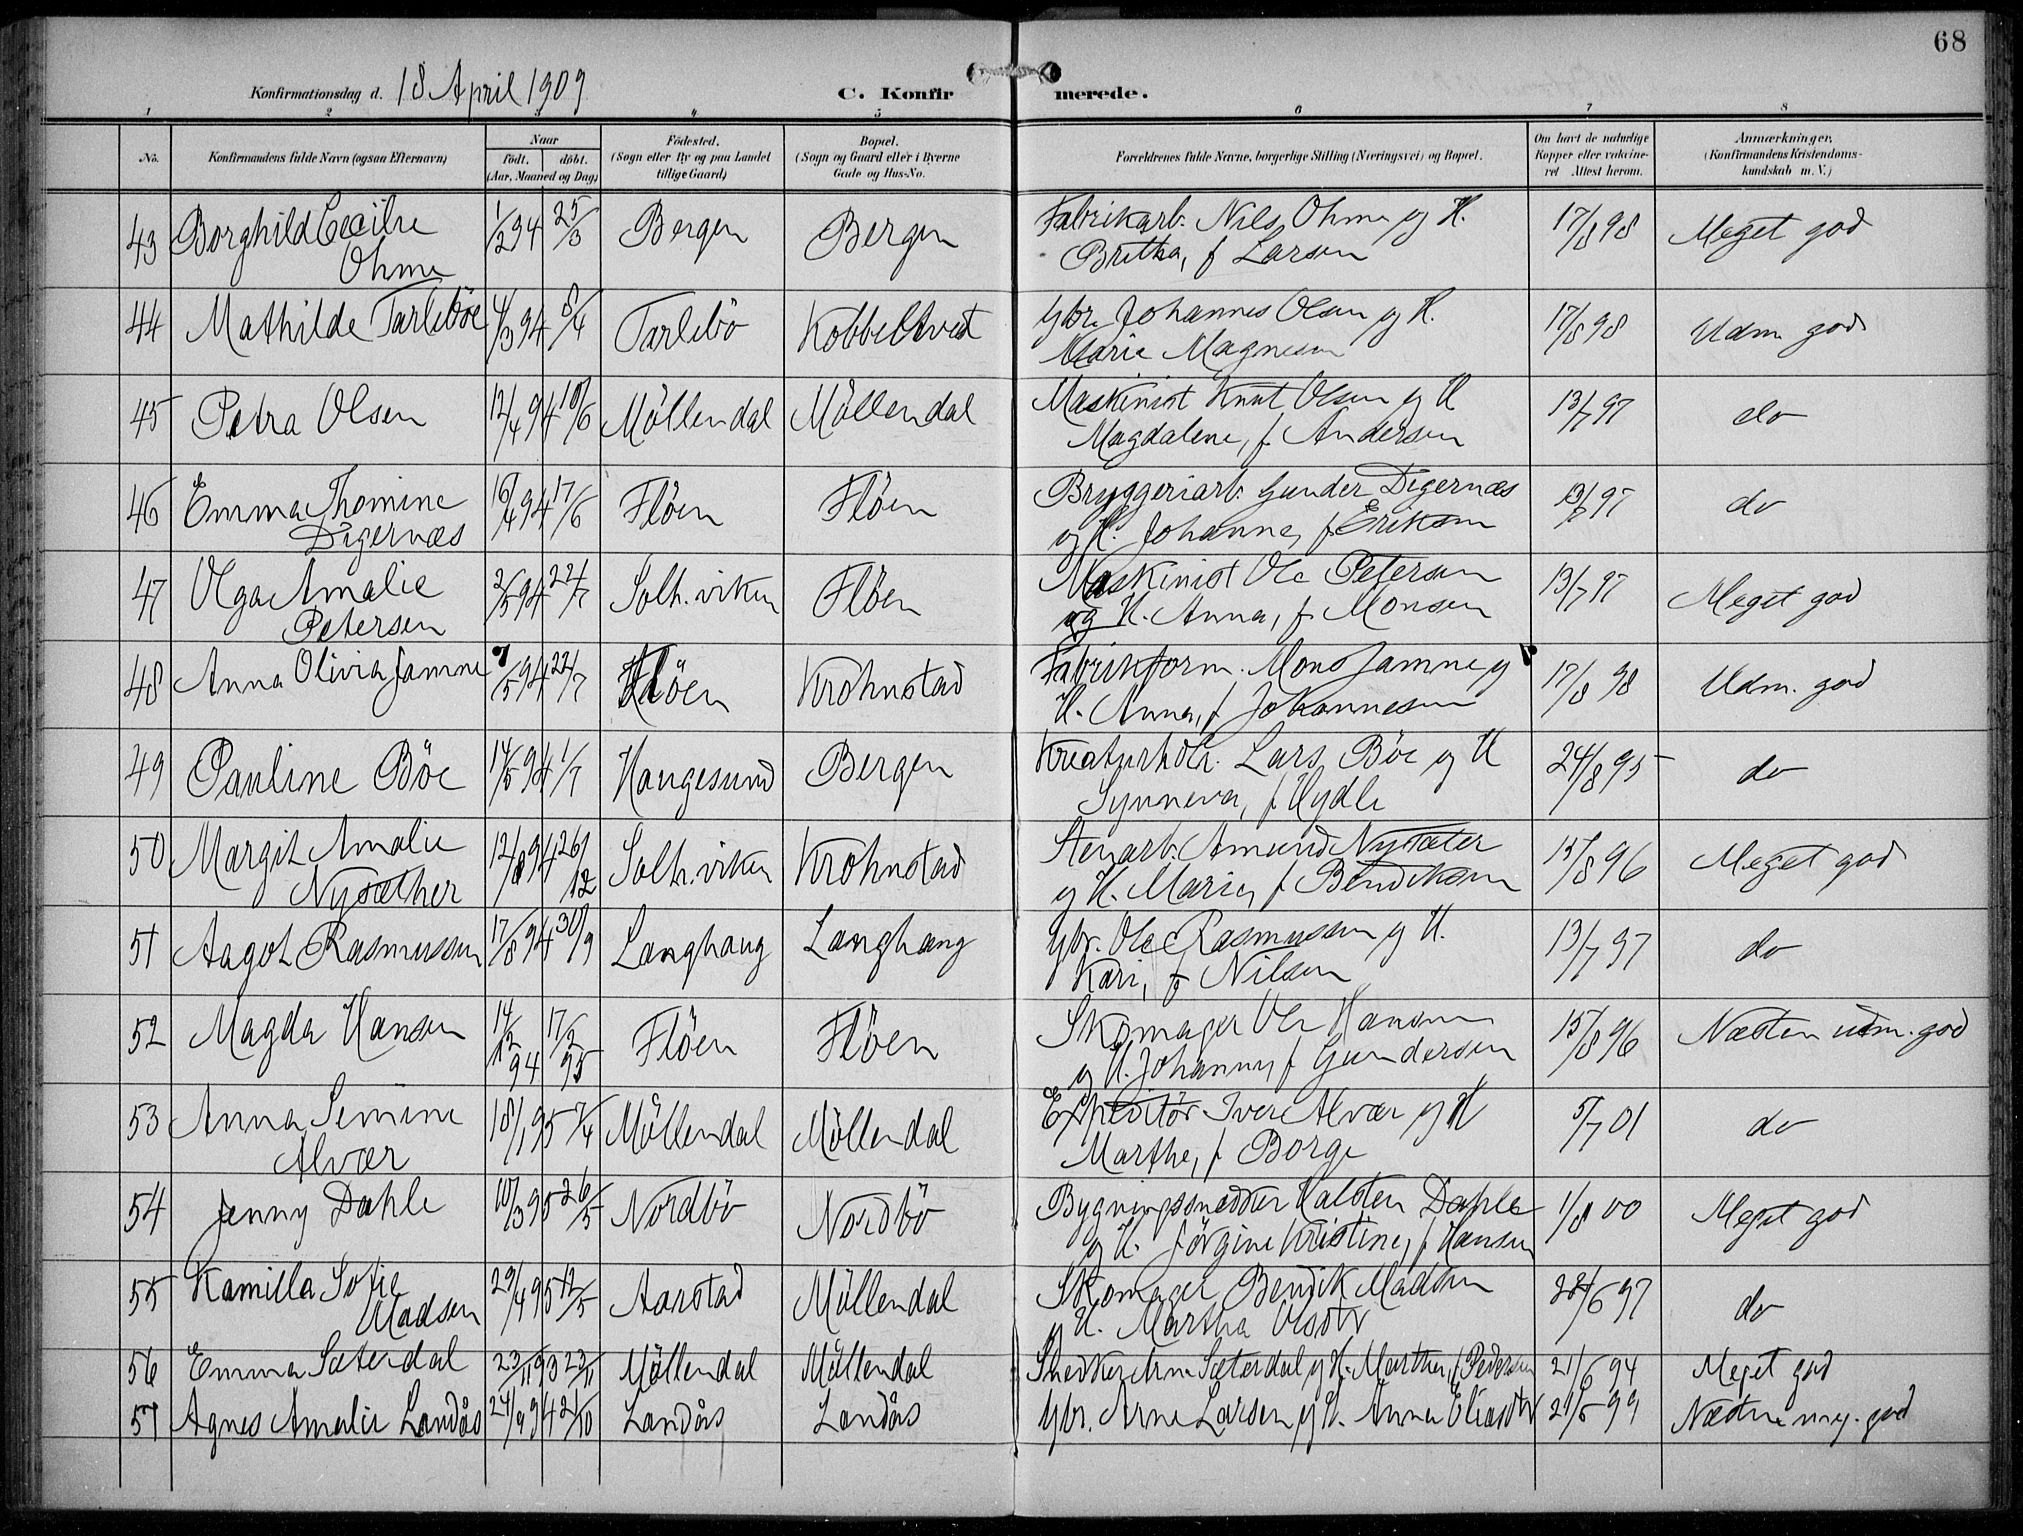 68
Konfirmationsdag d. 18 April 1909 C. Konfirmerede.
1 2 3 4 5 6 7 8
No. Konfirmandens fulde Navn (ogsaa Efternavn) Naar födt. döbt. (Aar, Maaned og Dag) Födested. (Sogn eller By og paa Landet tillige Gaard) Bopæl. (Sogn og Gaard eller i Byerne Gade og Hus-No. Forældrenes fulde Navne, borgerlige Stilling (Næringsvei) og Bopæl. Om havt de naturlige Kopper eller vakcineret Attest herom. Anmærkninger, (Konfirmandens Kristendomskundskab m. V.)
43 Borghild Cecilie Ohme 1/2 94 25/3 Bergen Bergen Fabrikarb. Nils Ohme og H. Britha, f Larsen 17/8 98 Meget god
44 Mathilde Tarleböe 4/3 94 8/4 Tarlebö Kobbeltveit Gbr. Johannes Olsen og H. Marie Magnesen 17/8 98 Udm. god
45 Petra Olsen 12/4 94 10/6 Möllendal Möllendal Maskinist Knut Olsen og H Magdalene, f Andersen 13/7 97 do
46 Emma Thomine Digernæs 16/4 94 17/6 Flöen Flöen Bryggeriarb. Gunder Digernæs og H. Johanne, f Eriksen 13/7 97 do
47 Olga Amalie Petersen 2/5 94 22/7 Solh.viken Flöen Maskinist Ole Petersen og H. Anna, f Monsen 13/7 97 Meget god
48 Anna Olivia Jamne 7/5 94 22/7 Flöen Krohnstad Fabrikform. Mons Jamne og H. Anna, f Johannesen 17/8 98 Udm. god
49 Pauline Böe 14/5 94 1/7 Haugesund Bergen Kreaturhdlr. Lars Böe og H Synneva, f Hydle 24/8 95 do
50 Margit Amalie Nysæther 12/8 94 26/12 Solh.viken Krohnstad Stenarb. Amund Nysæter og H. Marie, f Bendiksen 15/8 96 Meget god
51 Aagot Rasmussen 17/8 94 30/9 Langhaug Langhaug Gbr. Ole Rasmussen og H. Kari, f Nilsen 13/7 97 do
52 Magda Hansen 14/12 94 17/2 95 Flöen Flöen Skomager Ole Hansen og H. Johanne, f Gundersen 15/8 96 Næsten udm. god
53 Anna Semine Alvær 18/1 95 7/4 Möllendal Möllendal Expeditör Iver Alvær og H Marthe, f Borge 5/7 01 do
54 Jenny Dahle 10/3 95 26/5 Nordbö Nordbö Bygningssnedker Halsten Dahle og H. Jörgine Kristine, f Hansen 1/8 00 Meget god
55 Kamilla Sofie Madsen 29/4 95 12/5 Aarstad Möllendal Skomager Bendik Madsen og H. Martha Olsdtr 28/6 97 do
56 Emma Sæterdal 23/11 93 23/11 Möllendal Möllendal Snedker Arne Sæterdal og H. Marthe, f Pedersen 21/6 94 Meget god
57 Agnes Amalie Landås 24/9 94 21/10 Landås Landås Gbr. Arne Larsen og H. Anna Eliasdtr 21/6 99 Næsten meg. god